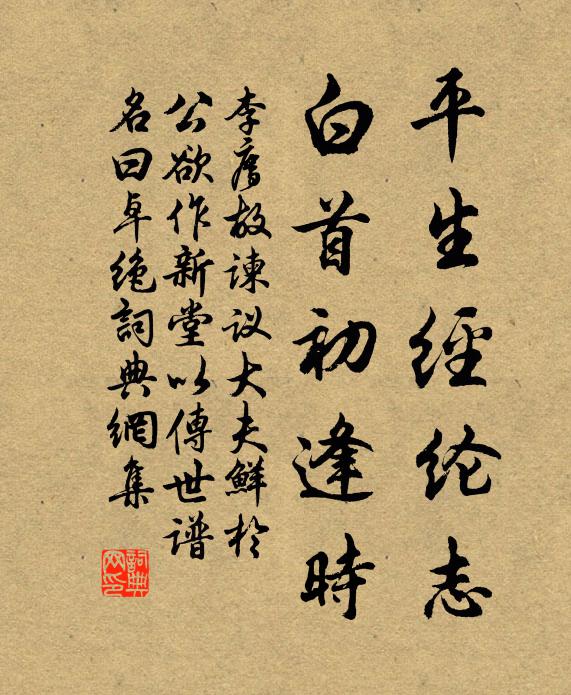 平生經纶志
白首初逢時
李廌故諫议大夫鮮於
公欲作新堂以傳世谱
名曰卓绝詞典網集
詞典网印